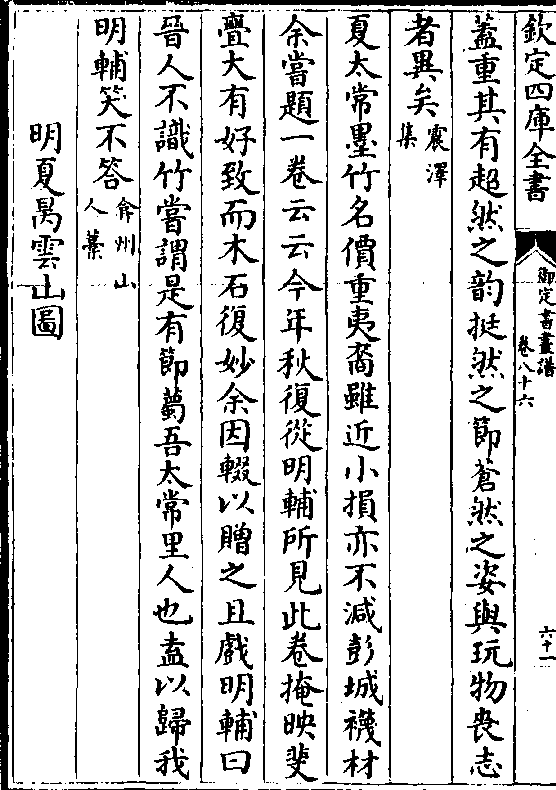 欽定四庫全書
御定書畫譜
卷八十六
六十一
蓋重其有超然之韵挺然之節蒼然之姿與玩物喪志
者異矣震澤集
夏太常墨竹名價重夷裔雖近小損亦不減彭城襪材
余嘗題一卷云云今年秋復從明輔所見此卷掩映斐
亹大有好致而木石復妙余因輟以贈之且戲明輔曰
晉人不識竹嘗謂是有節蔔吾太常里人也盍以歸我
明輔笑不答弇州山人藁
明夏昺雲山圖